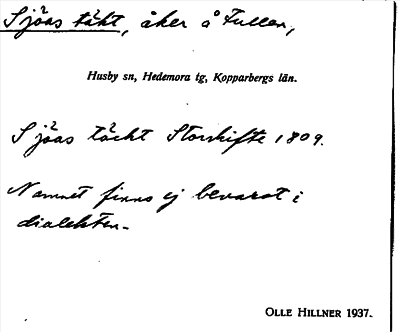 Sjöas täkt, åker å Fullen,
Husby sn, Hedemora tg, Kopparbergs län.
Sjöas täckt Storskifte 1809.
Namnet finns ej bevarat i
dialekten.
OLLE HILLNER 1937.